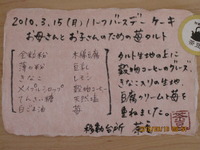 2010.3.15(月) ハーフバースデーケーキ
お母さんとお子さんのための苺タルト
全粒粉
薄力粉
きなこ
メイプルシロップ
てんさい糖
白ごま油
木綿豆腐
豆乳
レモン
穀物コーヒー
天然塩
苺
タルト生地の上に
穀物コーヒーのグレーズ、
きなこ入りの生地
豆腐クリームと苺を
重ねました。
移動台所